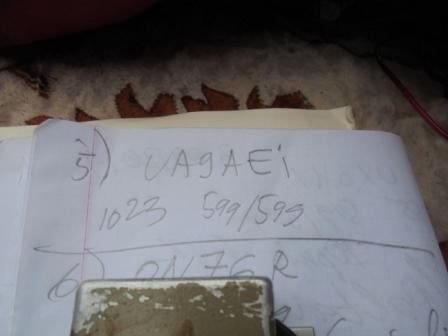 5) UA9AEi
1023 599/599
6) ON7GR